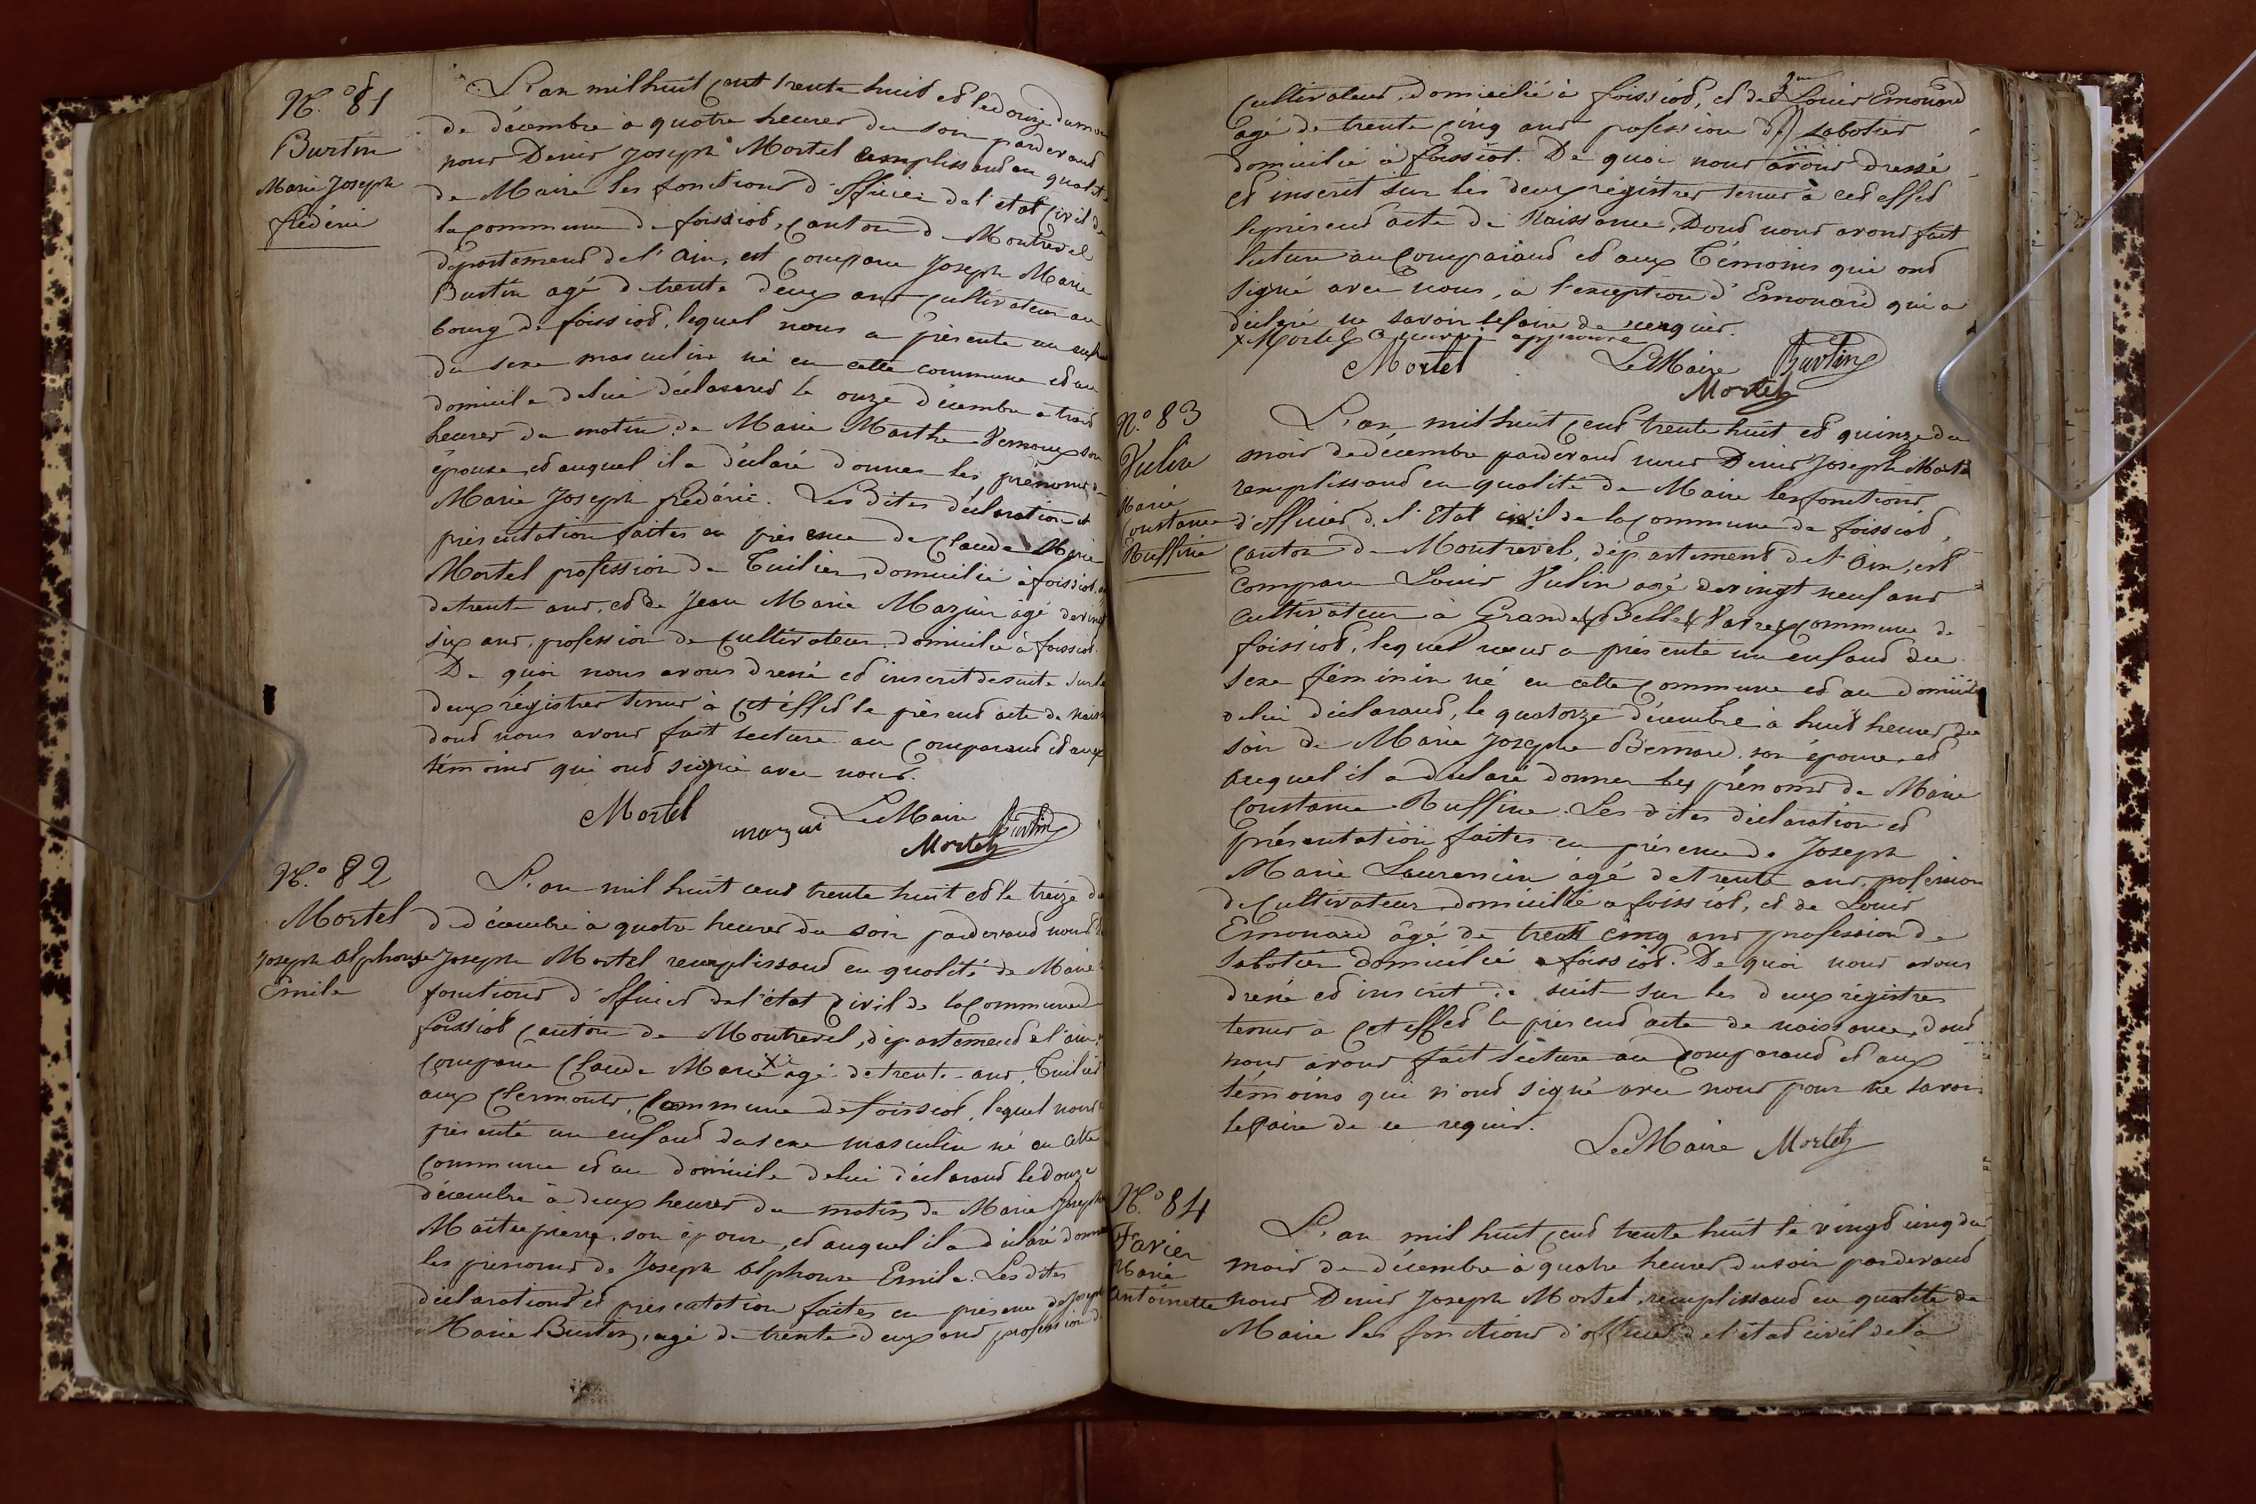 N.° 81
Burtin
Marie Joseph
frédéric
L'an mil huit cent trente huit et le onze du mois
de décembre à quatre heures du soir pardevant
nous Denis Joseph Mortel remplissant en qualité
de Maire les fonctions d'officier de l'etat civil de
la commune de foissiat, canton de Montrevel
département de l'Ain, est comparu Joseph Marie
Burtin agé de trente deux ans cultivateur au
bourg de foissiat, lequel nous a présenté un enfant
du sexe masculin né en cette commune et au
domicile de lui déclarant le onze décembre a trois
heures du matin, de Marie Marthe Vernoux son
épouse, et auquel il a déclaré donner les prénoms de
Marie Joseph frédéric. Les dites déclaration et
présentation faites en présence de Claude Marie
Mortel profession de Tuilier domicilié à foissiat,
de trente ans, et de Jean Marie Mazuir agé de vingt
six ans, profession de cultivateur domicilié à foissiat.
De quoi nous avons dressé et inscrit desuite sur les
deux régistres tenus à cet éffet le présent acte de naissance
dont nous avons fait lecture au comparant et aux
témoins qui ont signé avec nous.
Mortel mazuir Le Maire Burtin
Mortel
N.° 82
Mortel
Joseph Alphonse
Emile
L'an mil huit cent trente huit et le treize du
de décembre à quatre heures du soir pardevant nous
Joseph Mortel remplissant en qualité de Maire
fonctions d'officier de l'état civil de la commune de
foissiat canton de Montrevel, département de l'ain,
comparu Claude Marie x agé de trente ans, Tuilier
aux Clermonts, commune de foissiat, lequel nous a
présenté un enfant du sexe masculin né en cette
commune et au domicile de lui déclarant le douze
décembre à deux heures du matin, de Marie Josephe
Maitrepierre, son épouse, et auquel il a déclaré donner
les prénoms de Joseph Alphonse Emile. Les dites
déclarations et présentation faites en présence de Joseph
Marie Burtin, agé de trente deux ans profession de
cultivateur, domicilié à foissiat, et de Louis Emonard
agé de trente cinq ans profession de sabotier
domicilié à foissiat. De quoi nous avons dressé
et inscrit sur les deux régistres tenus à cet effet
le présent acte de Naissance, Dont nous avons fait
lecture au comparant et aux Témoins qui ont
signé avec nous, à l'exception d'Emonard qui a
déclaré ne savoir le faire de ce requis.
x Mortel approuvé
Mortel Le Maire Burtin
Mortel
N.° 83
Vulin
Marie
Constance
Ruffine
L'an mil huit cent trente huit et quinze du
mois de décembre pardevant nous Denis Joseph Mortel
remplissant en qualité de Maire les fonctions
d'officier de l'Etat civil de la commune de foissiat,
canton de Montrevel, département de l'Ain, est
comparu Louis Vulin agé de vingt neuf ans
cultivateur à Grande Belle Vavre commune de
foissiat, lequel nous a présenté un enfant du
sexe féminin né en cette commune et au domicile
de lui déclarant, le quatorze décembre à huit heures du
soir de Marie Josephe Bernard son épouse, et
auquel il a déclaré donner les prénoms de Marie
Constance Ruffine. Les dites déclaration et
présentation faites en présence de Joseph
Marie Laurencin âgé de trente ans, profession
de cultivateur domicilié à foissiat, et de Louis
Emonard âgé de trente cinq ans profession de
sabotier domicilié à foissiat. De quoi nous avons
dressé et inscrit de suite sur les deux régistres
tenus à cet effet le présent acte de naissance, dont
nous avons fait lecture au comparant et aux
témoins qui n'ont signé avec nous pour ne savoir
le faire de ce requis.
Le Maire Mortel
N.° 84
Favier
Marie
Antoinette
L'an mil huit cent trente huit le vingt cinq du
mois de décembre à quatre heures du soir pardevant
nous Denis Joseph Mortel, remplissant en qualité de
Maire les fonctions d'officier de l'état civil de la